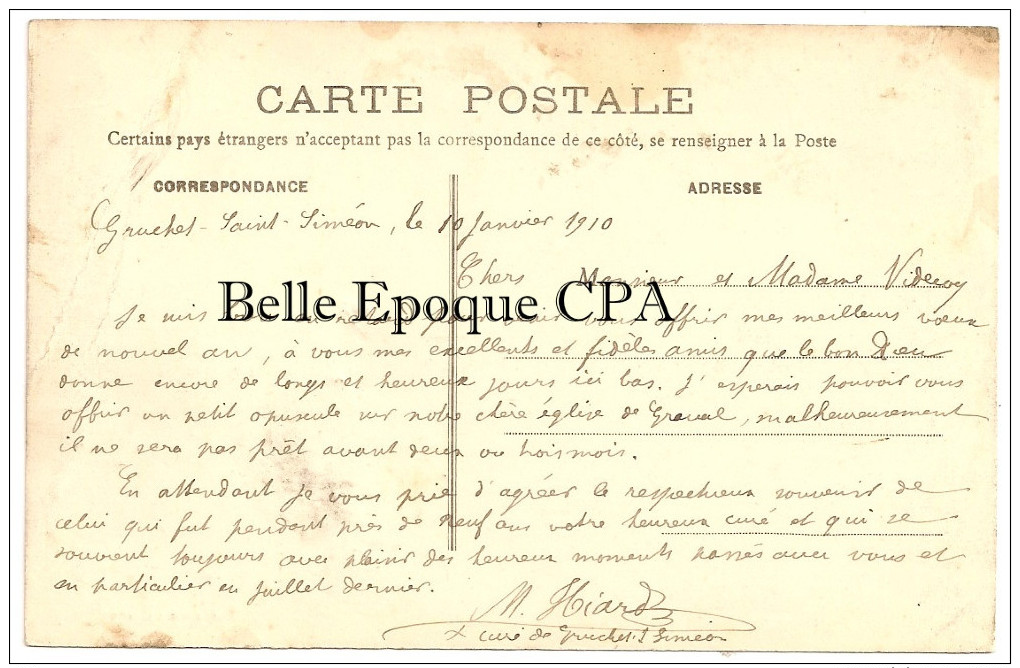 CARTE POSTALE
Certains pays étrangers n'acceptant pas la correspondance de ce côté, se renseigner à la Poste
CORRESPONDANCE ADRESSE
Gruchet-Saint-Siméon, le 10 Janvier 1910
Chers Monsieur et Madame Videcoq
Belle Epoque CPA
Je suis retard pour venir vous offrir mes meilleurs voeux
de nouvel an, à vous mes excellents et fidèles amis que le bon Dieu
donne encore de longs et heureux jours ici bas. J'espérais pouvoir vous
offrir un petit opuscule sur notre chère église de Graval, malheureusement
il ne sera pas prêt avant deux ou trois mois.
En attendant je vous prie d'agréer le respectueux souvenir de
celui qui fut pendant près de neuf ans votre heureux curé et qui se
souvient toujours avec plaisir des heureux moments passés avec vous et
en particulier en juillet dernier.
M. Hiard
curé de Gruchet St Siméon